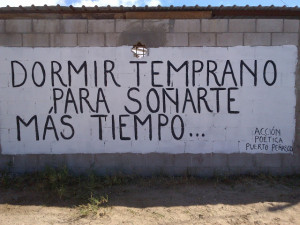 DORMIR TEMPRANO
PARA SOÑARTE
MÁS TIEMPO...
ACCIÓN
POÉTICA
PUERTO PEÑASCO